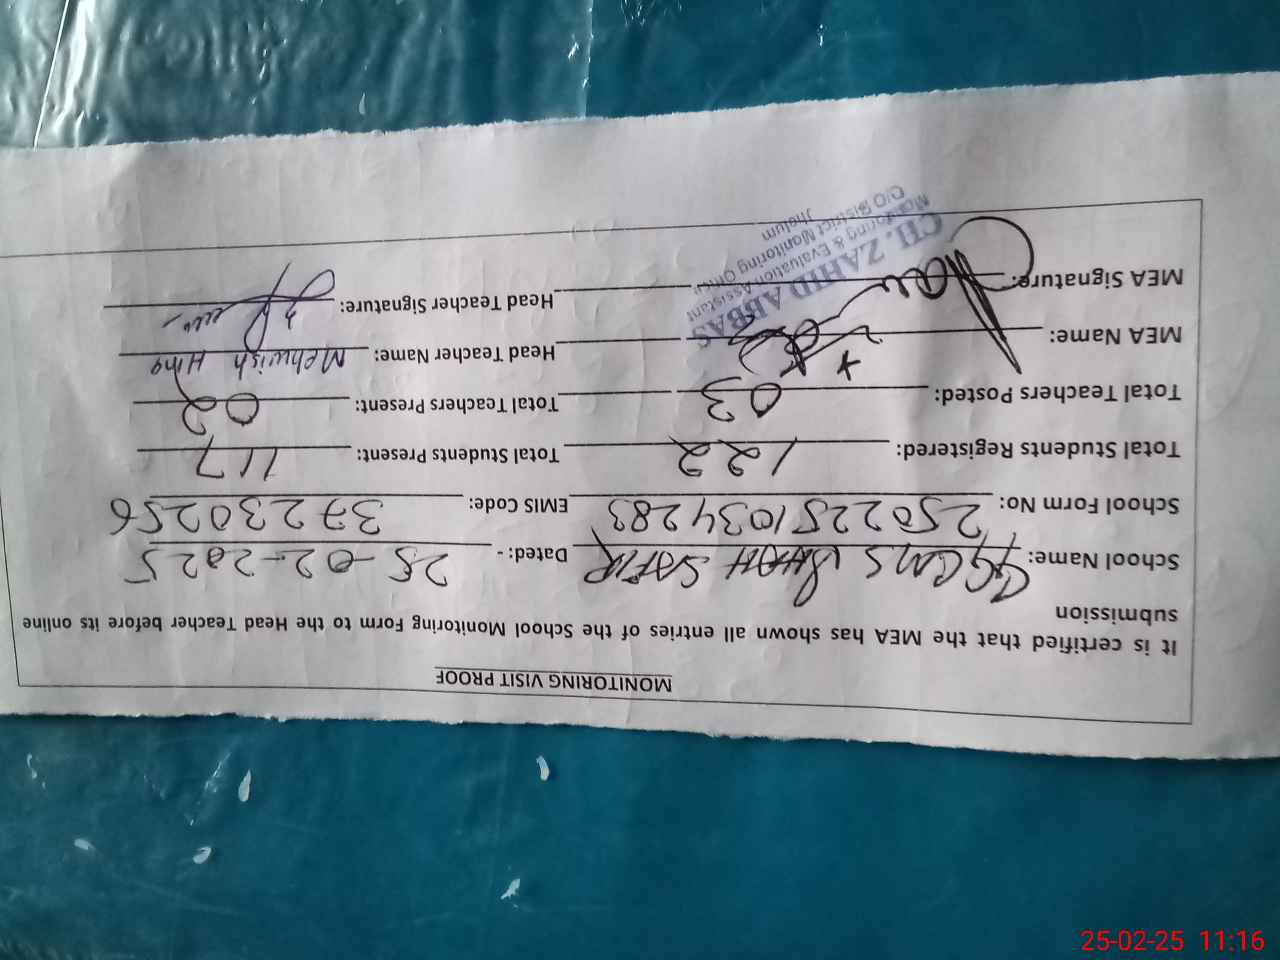 MONITORING VISIT PROOF
It is certified that the MEA has shown all entries of the School Monitoring Form to the Head Teacher before its online
submission
School Name: GGCMS SHAH SAFIR Dated: - 25-02-2025
School Form No: 2502251034283 EMIS Code: 37230256
Total Students Registered: 122 Total Students Present: 117
Total Teachers Posted: 03 Total Teachers Present: 02
MEA Name: Head Teacher Name: Mehwish Hina
MEA Signature: Head Teacher Signature:
CH. ZAHID ABBAS
Monitoring & Evaluation Assistant
O/O District Monitoring Officer
Jhelum
25-02-25 11:16